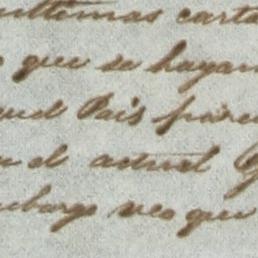 ultimas carta
que se hayan
País pare
el actual
mbargo veo que